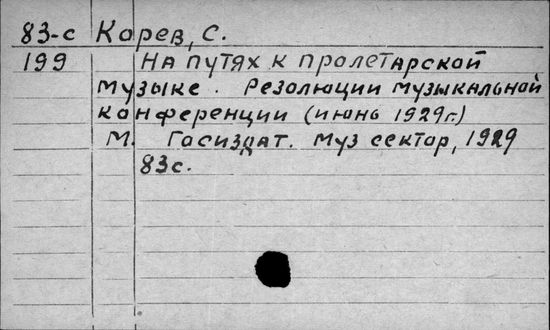 83-с Корев, С.
199 На путях к пролетарской
музыке. Резолюции музыкальной
конференции (июнь 1929г.)
М. Госиздат. муз сектор, 1929
83с.